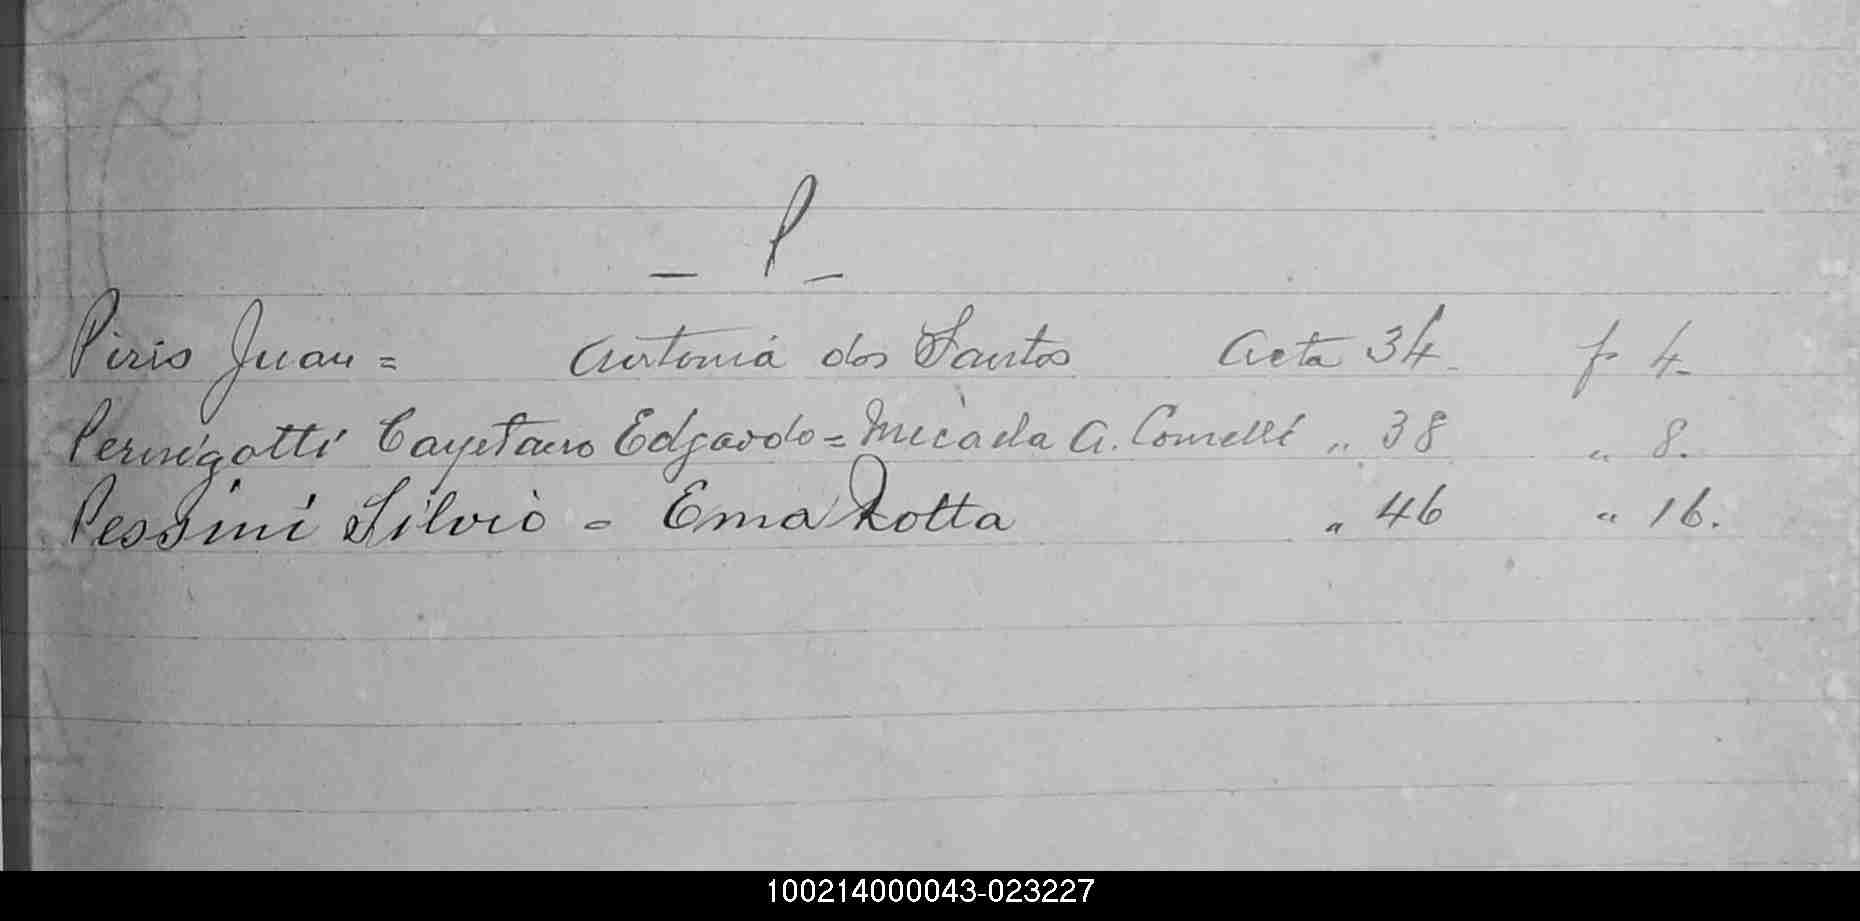 - P -
Piris Juan = Antonia dos Santos Acta 34 f 4.
Pernigotti Cayetano Edgardo = Micaela A. Comelli " 38 " 8.
Pessini Silvio - Ema Rotta " 46 " 16.
100214000043-023227